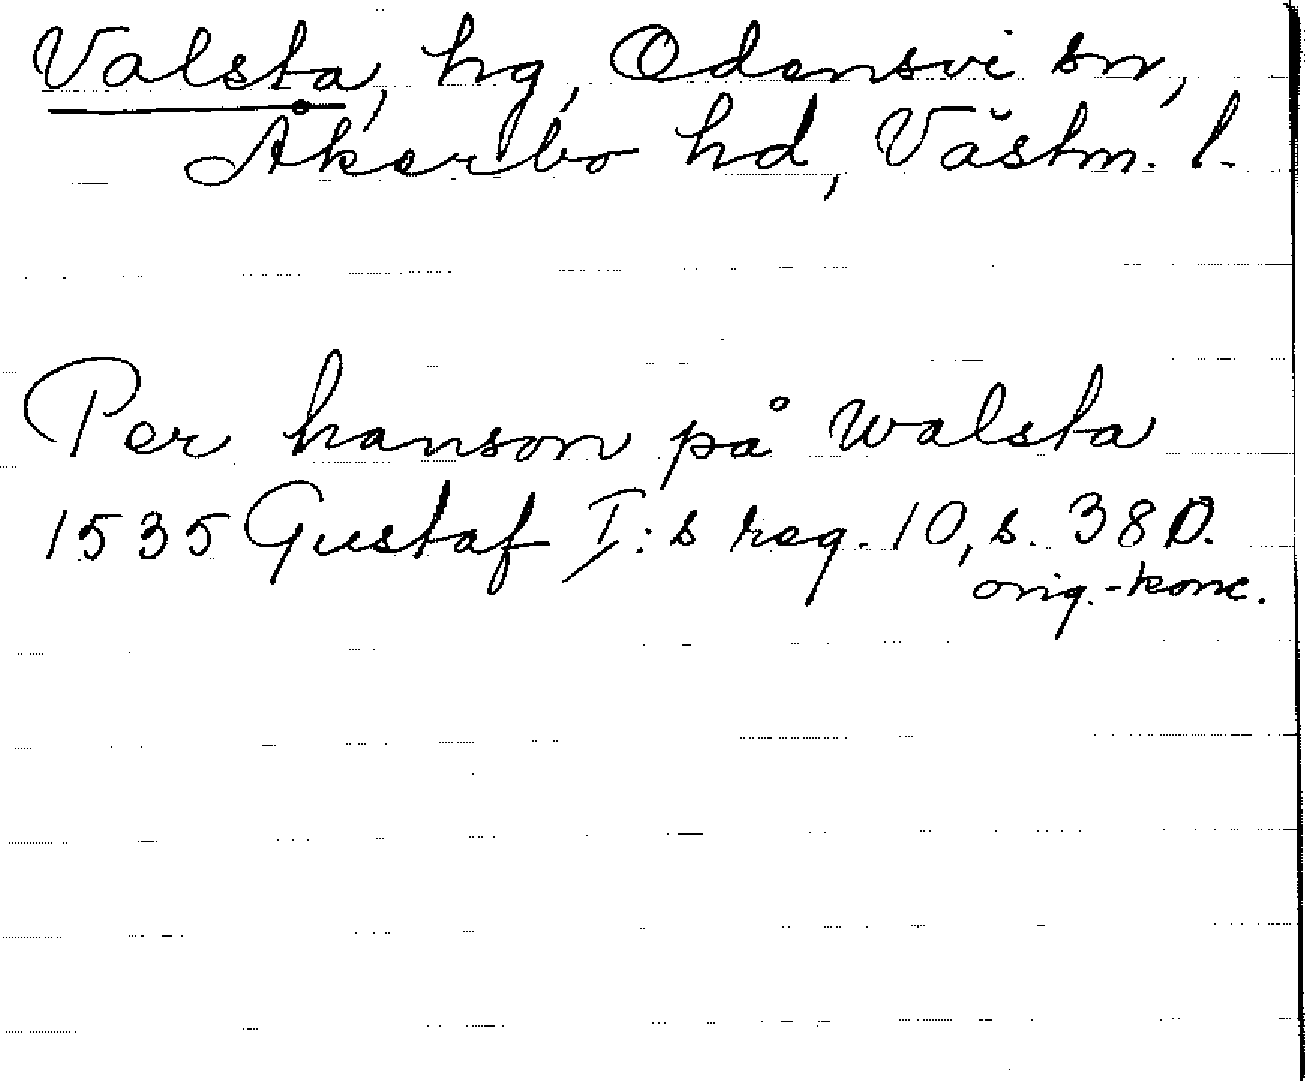 Valsta, hg, Odensvi sn,
Åkerbo hd, Västm. l.
Per hanson på walsta
1535 Gustaf I:s reg. 10, s. 380.
orig.-konc.